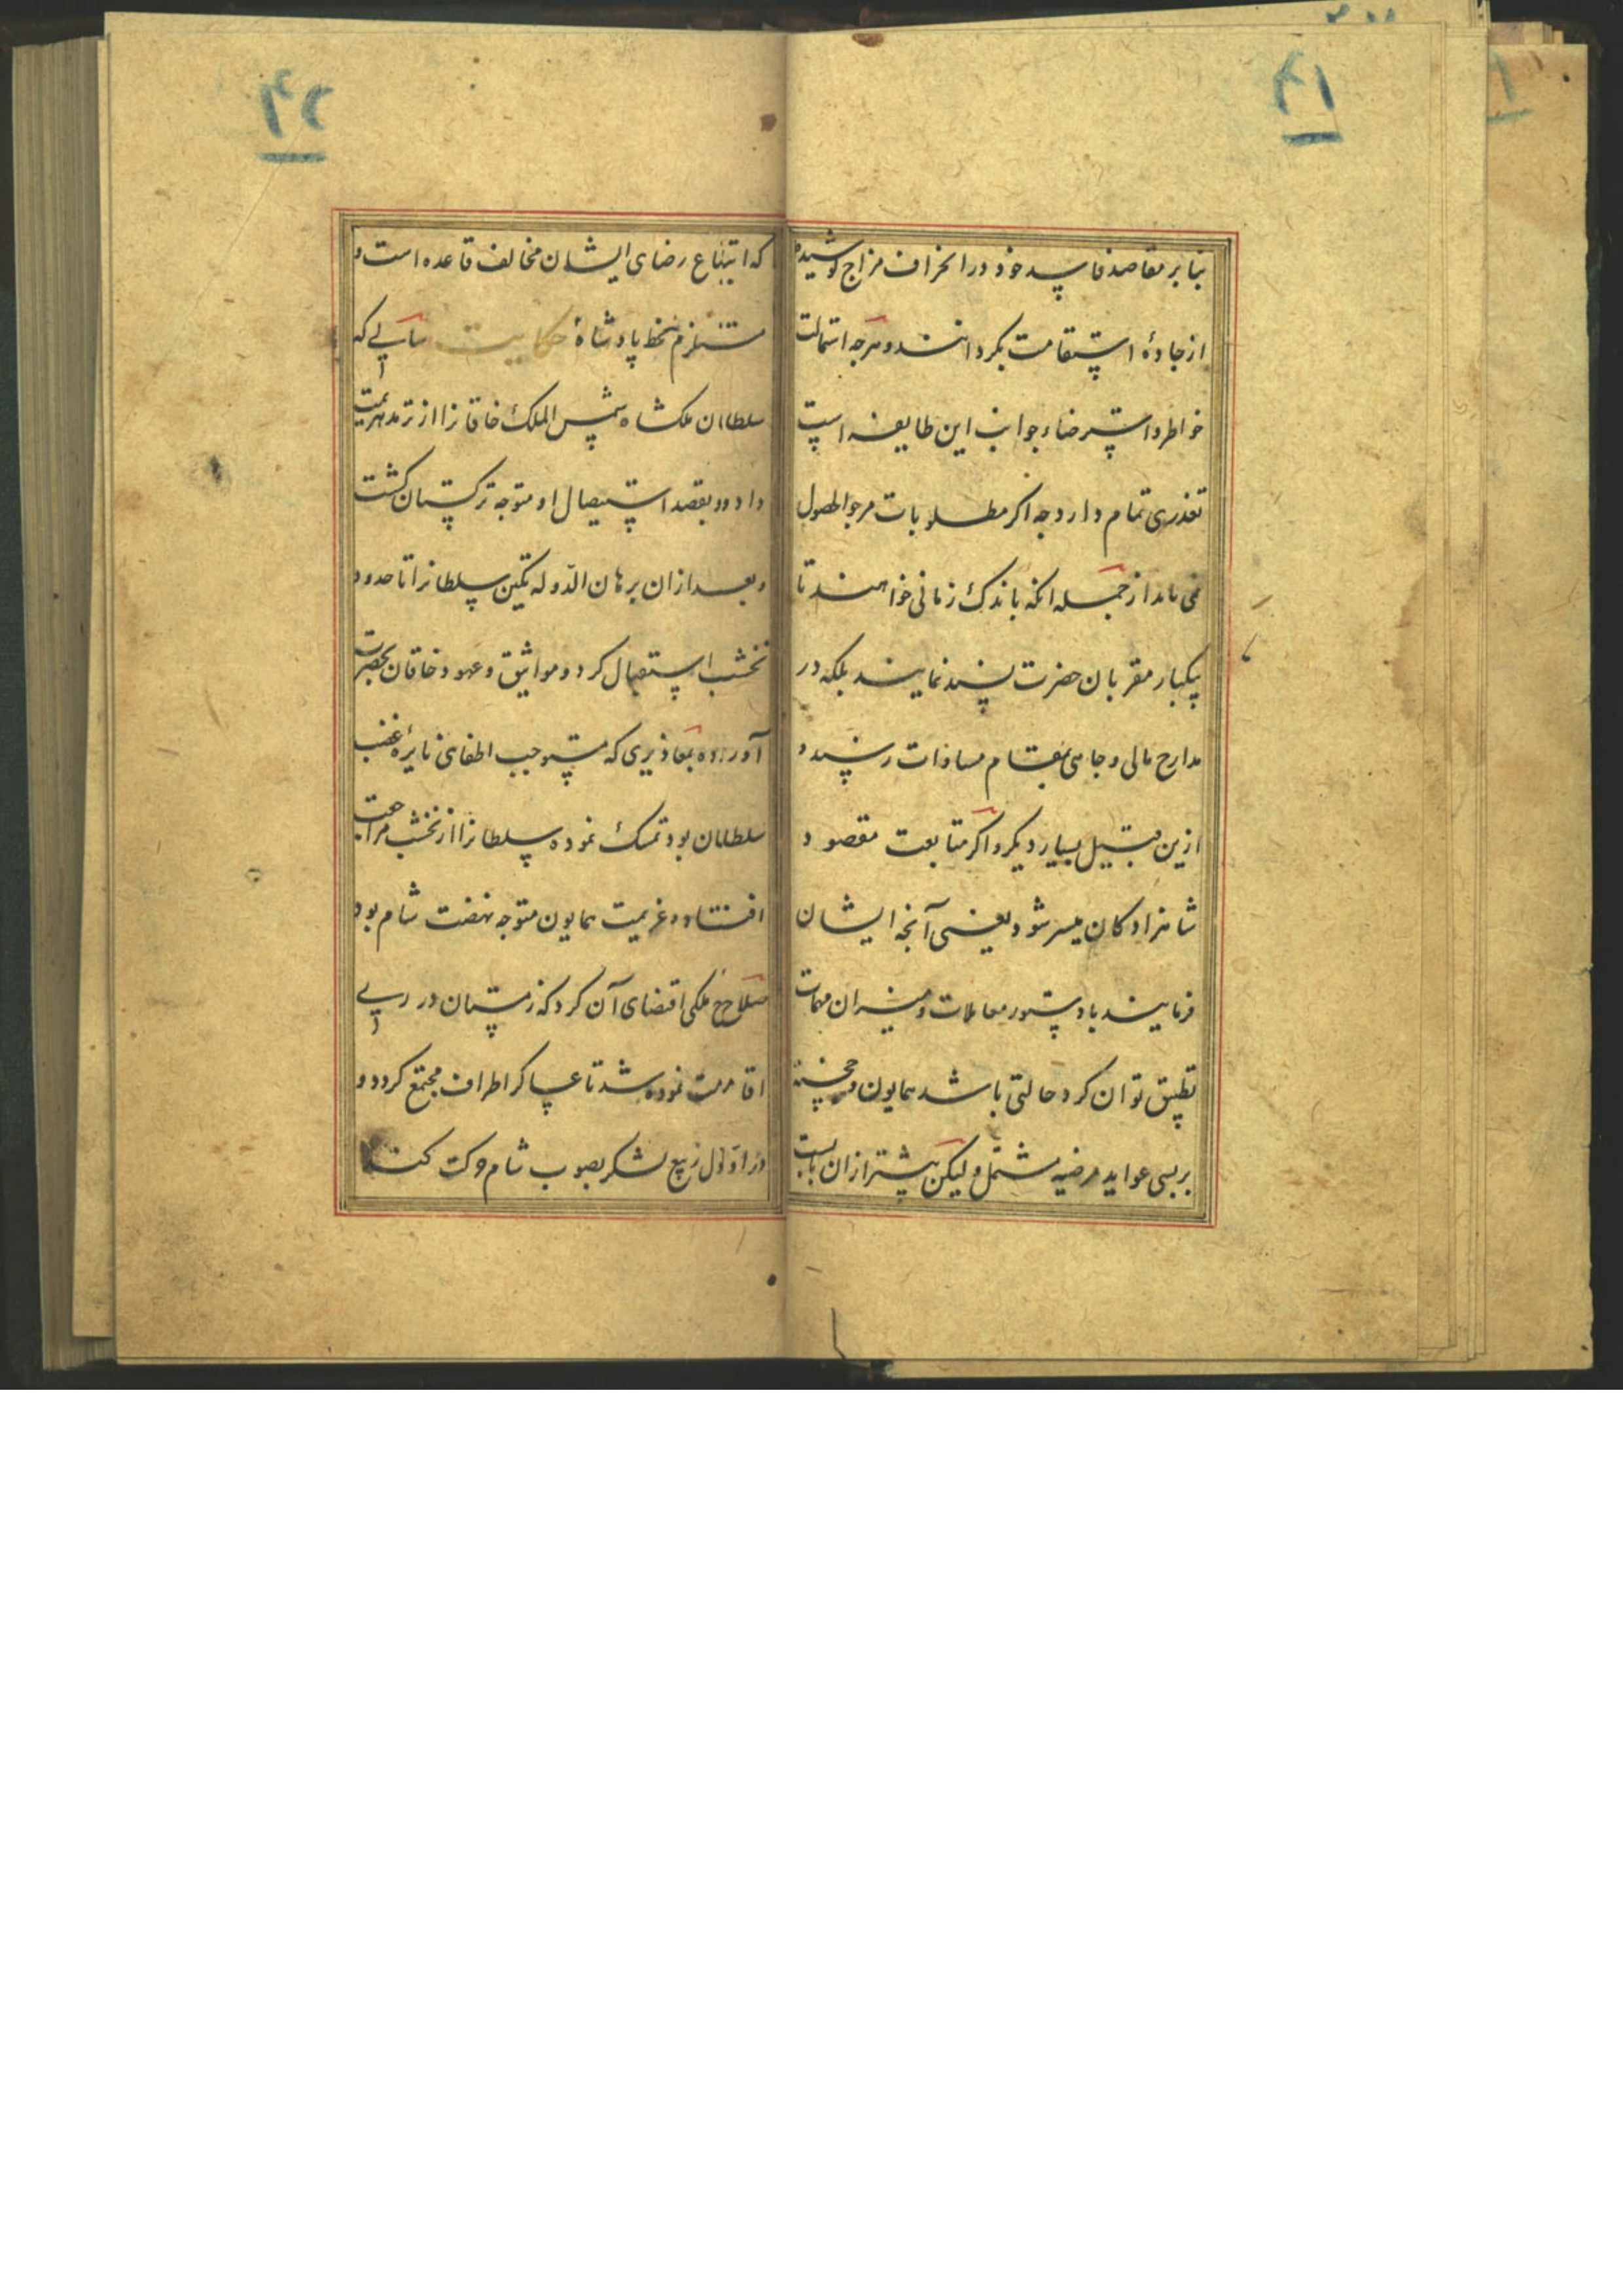 ۲۱
بنابر مقاصد فاسد خود در انحراف مزاج کوشیده
از جادهٔ استقامت بکردانند و هرجه استمالت
خواطر و استرضاء جوانب این طایفه است
تعذری تمام دارد جه اکر مطلوبات مرجو الحصول
می ماند از جمله انکه باندک زمانی خواهند تا
یکبار مقربان حضرت پسند نمایند بلکه در
مدارج مالی و جاهی بمقام مساوات رسند و
ازین قبیل بسیار دیکر و اکر متابعت مقصود
شاهزادکان میسر شود یعنی آنجه ایشان
فرمایند با دستور معاملات و میزان مهمات
تطبیق توان کرد حالتی باشد همایون و
بر بسی عواید مرضیه مشتمل و لیکن بیشتر از آن بابست
۲۲
که اتباع رضای ایشان مخالف قاعده است و
مستلزم سخط پادشاه حکایت سالی که
سلطان ملکشاه شمس الملک خاقانرا از ترمد هزیمت
داد و بقصد استیصال او متوجه ترکستان کشت
و بعد از ان برهان الدوله تکین سلطانرا تا حدود
نخشب استقبال کرد و مواثیق و عهود خاقان بحضرت
آورده بمعاذیری که مستوجب اطفای نایرهٔ غضب
سلطان بود تمسک نموده سلطانرا از نخشب مراجعت
افتاد و عزیمت همایون متوجه نهضت شام بود
صلاح ملکی اقتضای آن کرد که زمستان در ری
اقامت نموده شد تا عساکر اطراف مجتمع کردد و
در اوایل ربیع لشکر بصوب شام حرکت کند